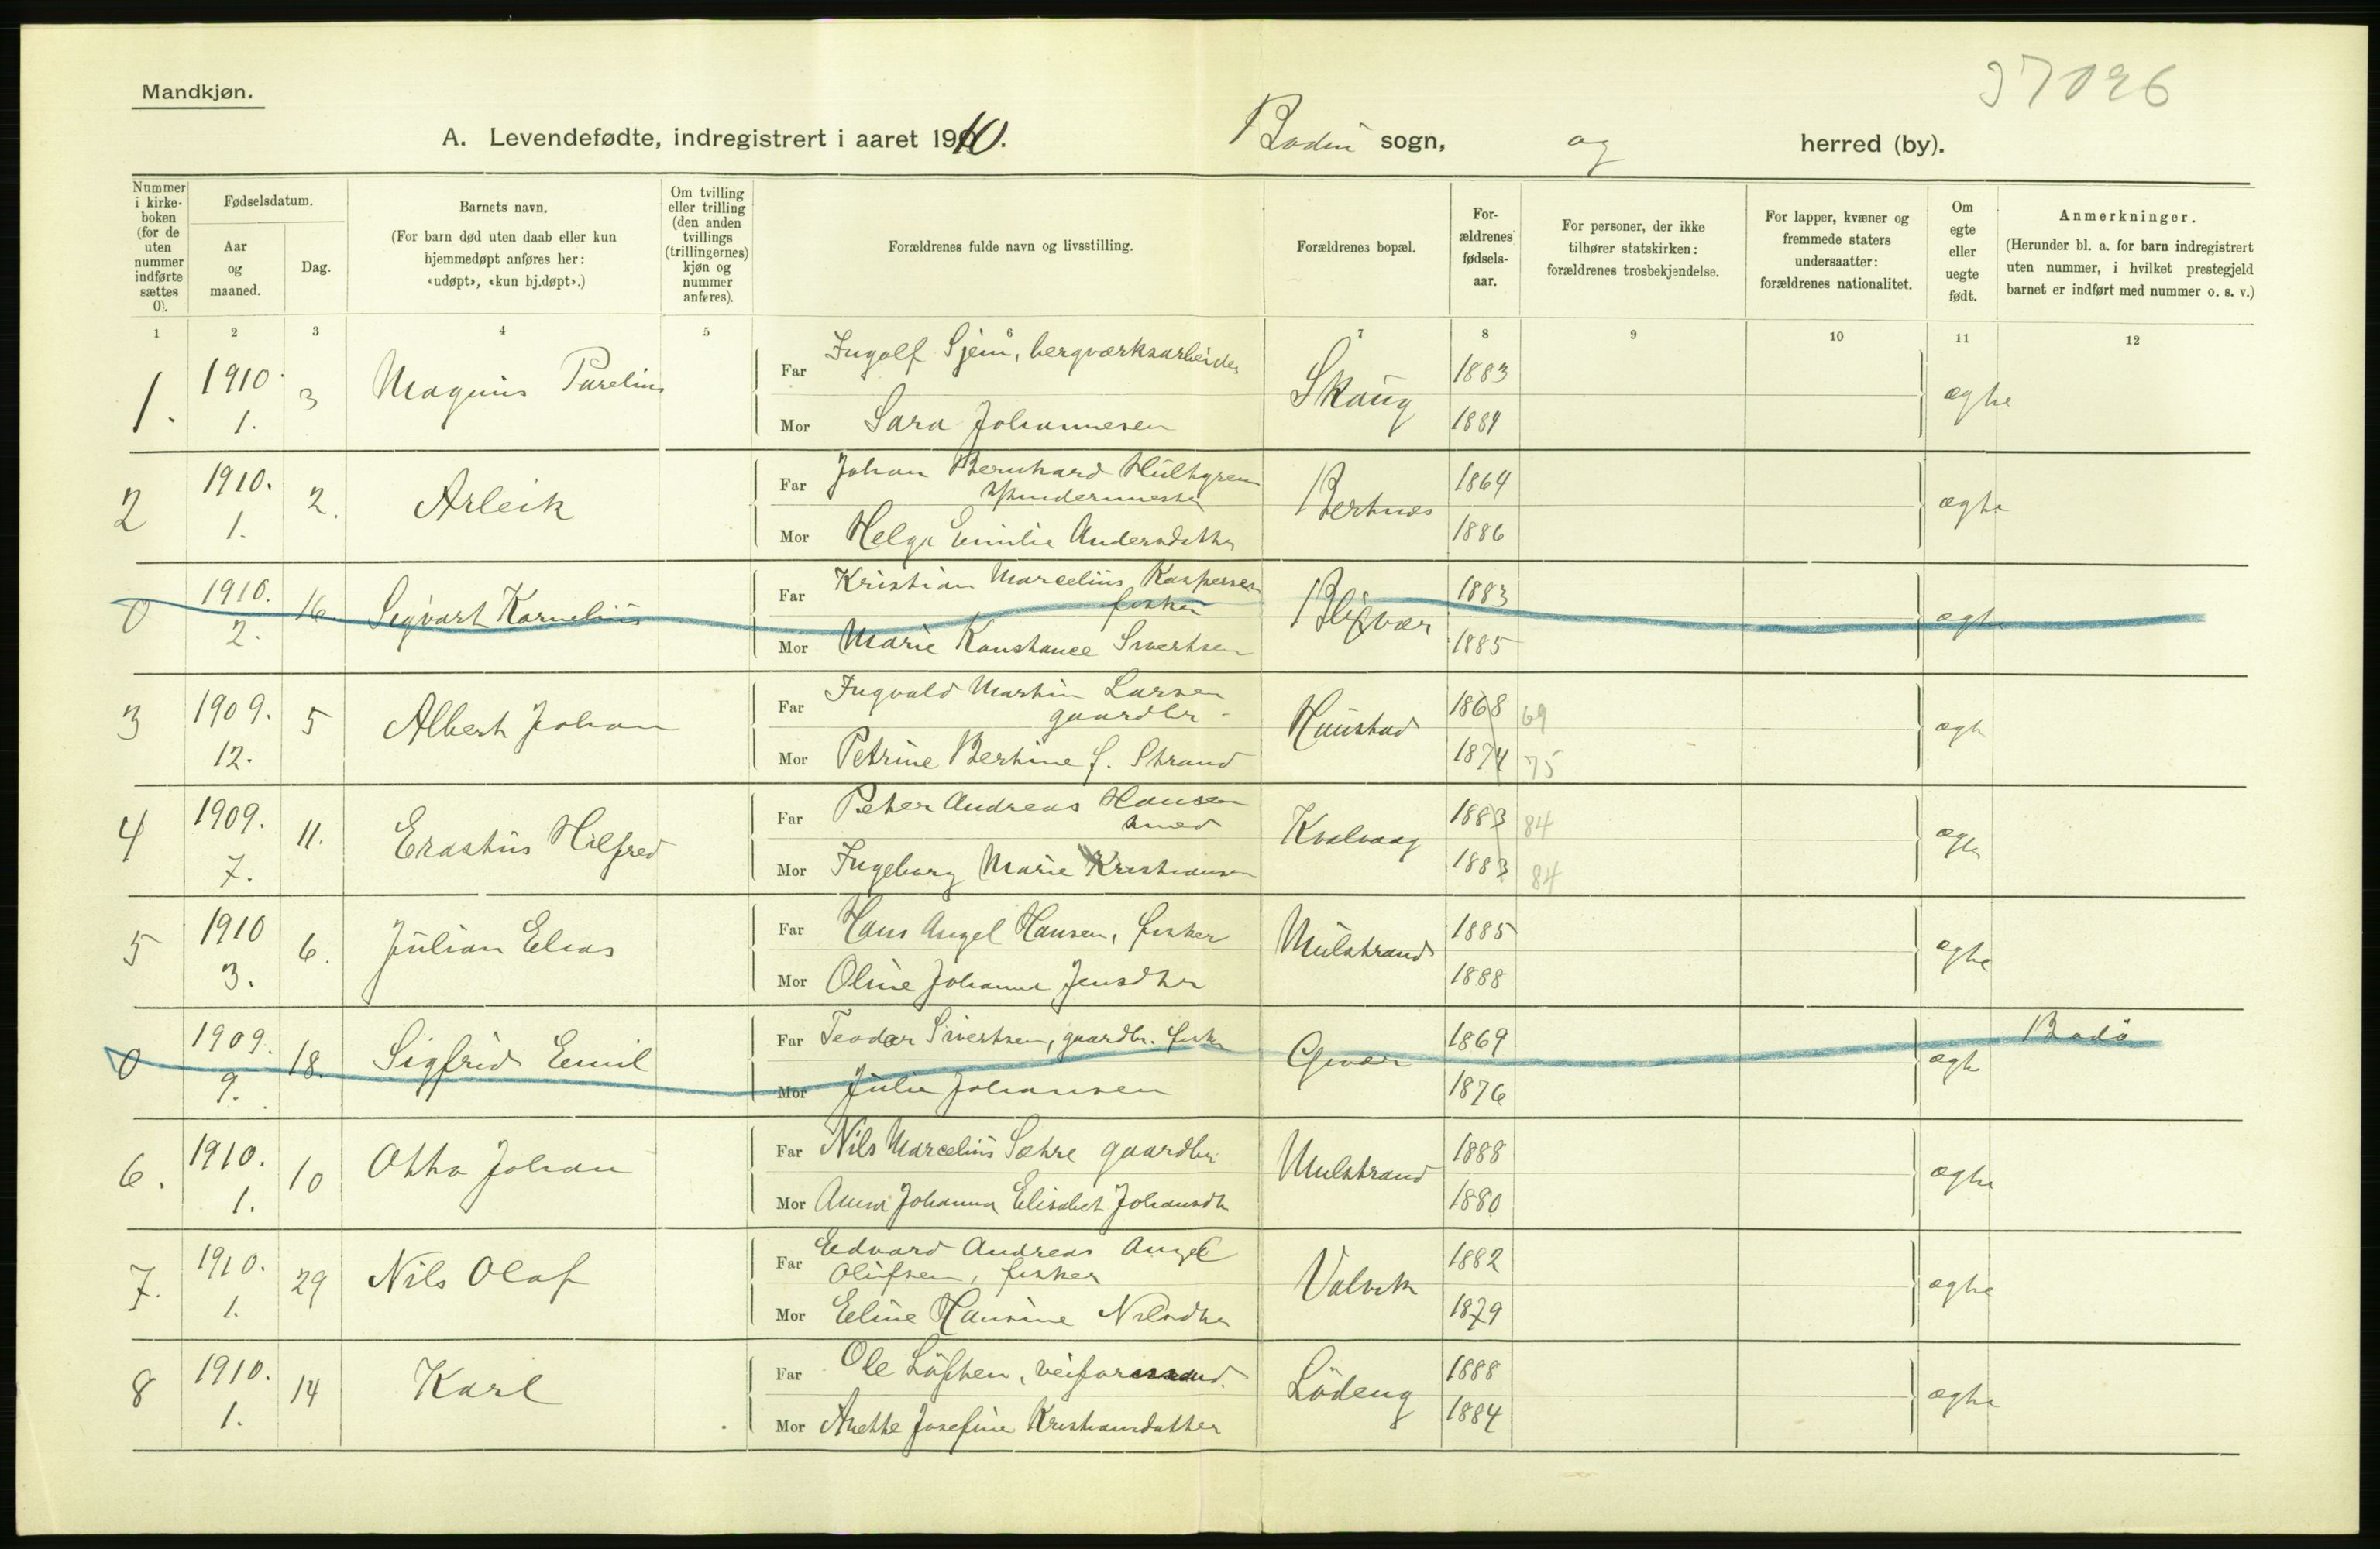 37096
Mandkjøn.
A. Levendefødte, indregistrert i aaret 1910. Bodin sogn, og herred (by).
Nummer i kirke-boken (for de uten nummer indførte sættes 0).
Fødselsdatum.
Aar og maaned.
Dag.
Barnets navn.
(For barn død uten daab eller kun hjemmedøpt anføres her: «udøpt», «kun hj.døpt».)
Om tvilling eller trilling (den anden tvillings (trillingernes) kjøn og nummer anføres).
Forældrenes fulde navn og livsstilling.
Forældrenes bopæl.
For-ældrenes fødsels-aar.
For personer, der ikke tilhører statskirken: forældrenes trosbekjendelse.
For lapper, kvæner og fremmede staters undersaatter: forældrenes nationalitet.
Om egte eller uegte født.
Anmerkninger.
(Herunder bl. a. for barn indregistrert uten nummer, i hvilket prestegjeld barnet er indført med nummer o. s. v.)
1 2 3 4 5 6 7 8 9 10 11 12
1. 1910. 1. 3 Magnus Parelius Far Ingolf Sjem, bergværksarbeider Skaug 1883 ægte
Mor Sara Johannesen 1889
2 1910. 1. 2. Arleik Far Johan Bernhard Hultgren Bertnes 1864 ægte
Mor Helga Emilie Andersdatter 1886
0 1910. 2. 16. Sigvart Kornelius Far Kristian Marcelius Kaspersen fisker Bligvær 1883 ægte
Mor Marie Konstance Sivertsen 1885
3 1909. 12. 5 Albert Johan Far Ingvald Martin Larsen gaardbr. Haustad 1868 69 ægte
Mor Petrine Bertine f. Strand 1874 75
4 1909. 7. 11. Erastus Hilfred Far Peter Andreas Hansen smed Kvalvaag 1883 84 ægte
Mor Ingeborg Marie Kristiansen 1883 84
5 1910 3. 6. Julian Elias Far Hans Angel Hansen, fisker Mulstrand 1885 ægte
Mor Oline Johanna Jensdtr 1888
0 1909. 9. 18. Sigfrid Emil Far Teodor Sivertsen, gaardbr. fisker Givær 1869 ægte Bodø
Mor Julie Johansen 1876
6. 1910. 1. 10 Otto Johan Far Nils Marcelius Sætre gaardbr Mulstrand 1888 ægte
Mor Anna Johanna Elisabet Johansdtr 1880
7. 1910. 1. 29 Nils Olaf Far Edvard Andreas Angel Olufsen, fisker Valvik 1882 ægte
Mor Eline Hansine Nilsdtr 1879
8 1910. 1. 14 Karl Far Ole Løften, veiformand. Lødeng 1888 ægte
Mor Anette Josefine Kristiansdatter 1884